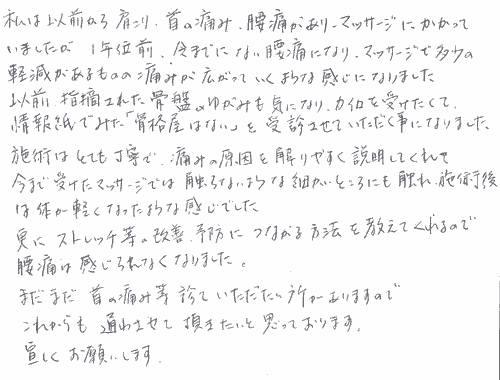 私は以前から肩こり、首の痛み、腰痛があり、マッサージにかかって
いましたが、1年位前、今までにない腰痛になり、マッサージで多少の
軽減があるものの痛みが広がっていくような感じになりました
以前、指摘された骨盤のゆがみも気になり、カイロを受けたくて、
情報紙でみた「骨格屋はない」を受診させていただく事になりました。
施術はとても丁寧で、痛みの原因を解りやすく説明してくれて
今まで受けたマッサージでは触らないような細かいところにも触れ、施術後
は体が軽くなったような感じでした
更にストレッチ等の改善、予防につながる方法を教えてくれるので
腰痛は感じられなくなりました。
まだまだ首の痛み等診ていただきたい所がありますので
これからも通わせて頂きたいと思っております。
宜しくお願いします。